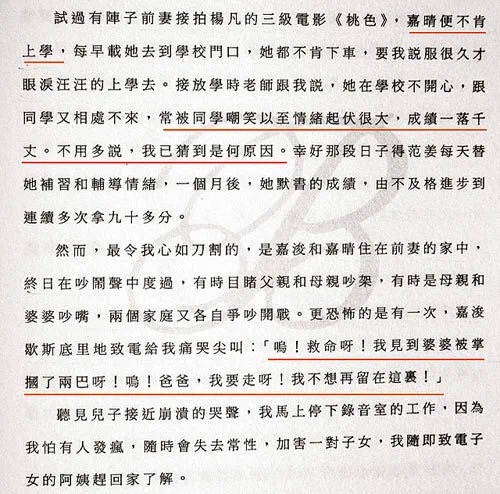 試過有陣子前妻接拍楊凡的三級電影《桃色》，嘉晴便不肯
上學，每早載她去到學校門口，她都不肯下車，要我說服很久才
眼淚汪汪的上學去。接放學時老師跟我說，她在學校不開心，跟
同學又相處不來，常被同學嘲笑以至情緒起伏很大，成績一落千
丈。不用多說，我已猜到是何原因。幸好那段日子得范姜每天替
她補習和輔導情緒，一個月後，她默書的成績，由不及格進步到
連續多次拿九十多分。
然而，最令我心如刀割的，是嘉浚和嘉晴住在前妻的家中，
終日在吵鬧聲中度過，有時目睹父親和母親吵架，有時是母親和
婆婆吵嘴，兩個家庭又各自爭吵開戰。更恐怖的是有一次，嘉浚
歇斯底里地致電給我痛哭尖叫：「嗚！救命呀！我見到婆婆被掌
摑了兩巴呀！嗚！爸爸，我要走呀！我不想再留在這裏！」
聽見兒子接近崩潰的哭聲，我馬上停下錄音室的工作，因為
我怕有人發瘋，隨時會失去常性，加害一對子女，我隨即致電子
女的阿姨趕回家了解。